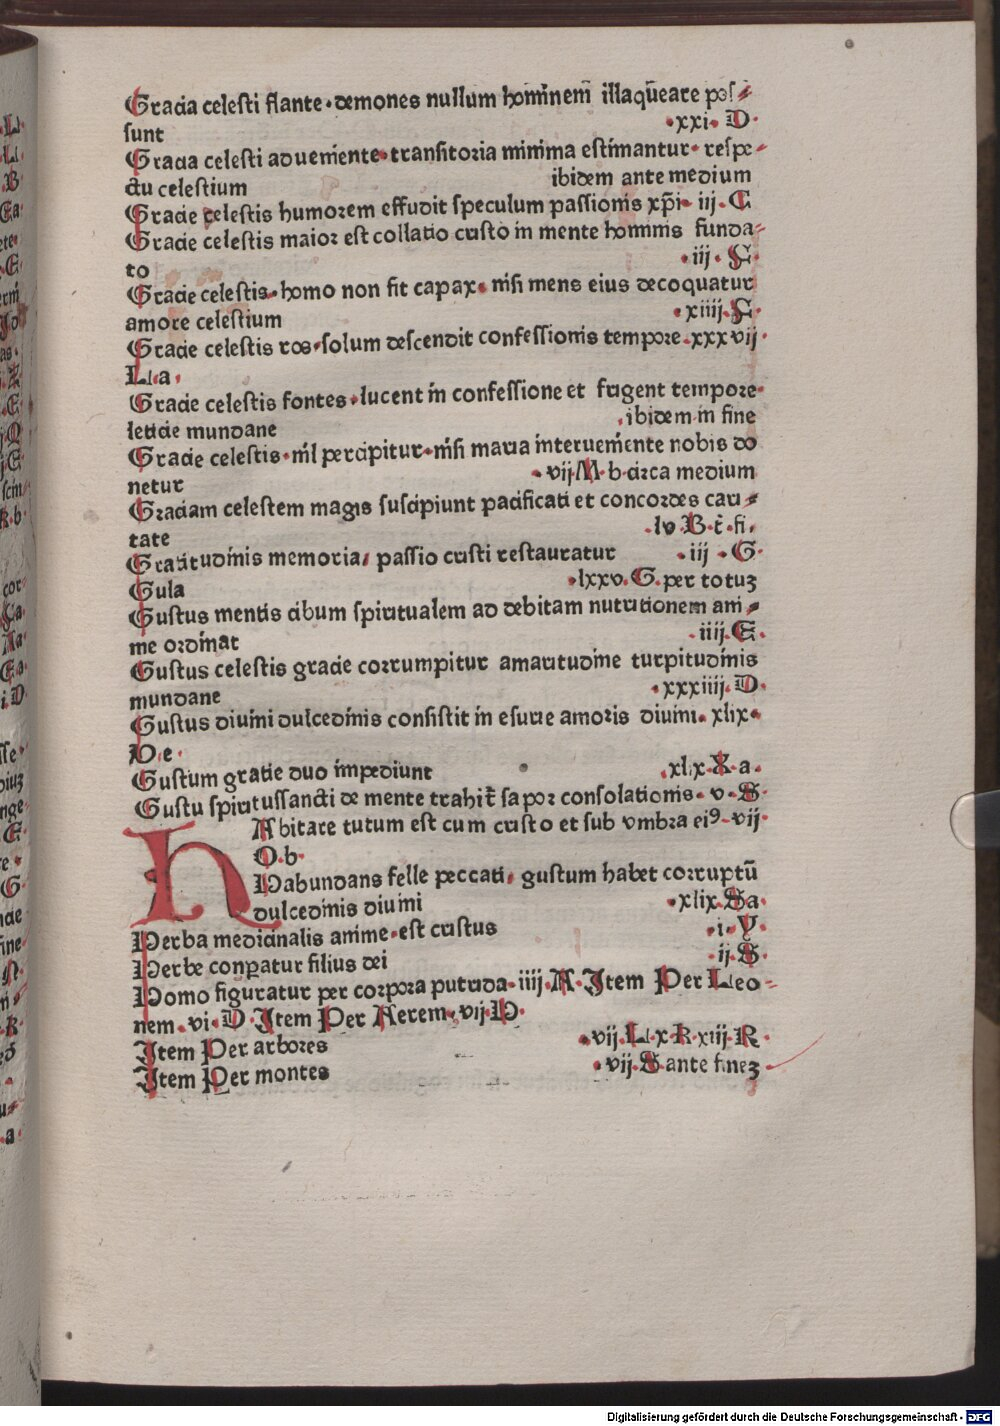 Gracia celesti flante · demones nullum hominem̄ illaq̄eare pos⸗
sunt ·xxi· D·
Gracia celesti adueniente· transitoria minima estimantur· respe⸗
ctu celestium ibidem ante medium
Gracie celestis humorem effudit speculum passionis xp̄i· iij· C
Gracie celestis maior est collatio cristo in mente hominis funda⸗
to ·iij· F·
Gracie celestis· homo non fit capax· nisi mens eius decoquatur
amore celestium ·xiiij·F·
Gracie celestis ros·solum descendit confessionis tempore·xxxvij·
L·a·
Gracie celestis fontes·lucent in confessione et fugent tempore·
leticie mundane ·ibidem in fine
Gracie celestis·nil percipitur·nisi maria interueniente nobis do
netur ·vij·M·b·circa medium
Graciam celestem magis suscipiunt pacificati et concordes cari⸗
tate ·lv·B·c̄·fi·
Gratitudinis memoria, passio cristi restauratur ·iij·G·
Gula ·lxxv·G·per totuꝫ
Gustus mentis cibum spiritualem ad debitam nutritionem ani⸗
me ordinat ·iiij·E·
Gustus celestis gracie corrumpitur amaritudine turpitudinis
mundane ·xxxiiij·D·
Gustus diuini dulcedinis consistit in esurie amoris diuini· xlix·
P·e·
Gustum gratie duo impediunt ·xlix·X·a·
Gustu spiritussancti de mente trahit̄ sapor consolationis· v·S·
HAbitare tutum est cum cristo et sub vmbra ei⁹·vij·
O·b·
Habundans felle peccati, gustum habet corruptū
dulcedinis diuini ·xlix·S·a·
Herba medicinalis anime·est cristus ·i·Y·
Herbe conꝑatur filius dei ·ij·S·
Homo figuratur per corpora putrida·iiij·A·Item Per Leo⸗
nem·vi·D·Item Per Aerem·vij·H·
Item Per arbores ·vij·L·x·R·xiij·R·
Item Per montes ·vij·S·ante fineꝫ
Digitalisierung gefördert durch die Deutsche Forschungsgemeinschaft · DFG